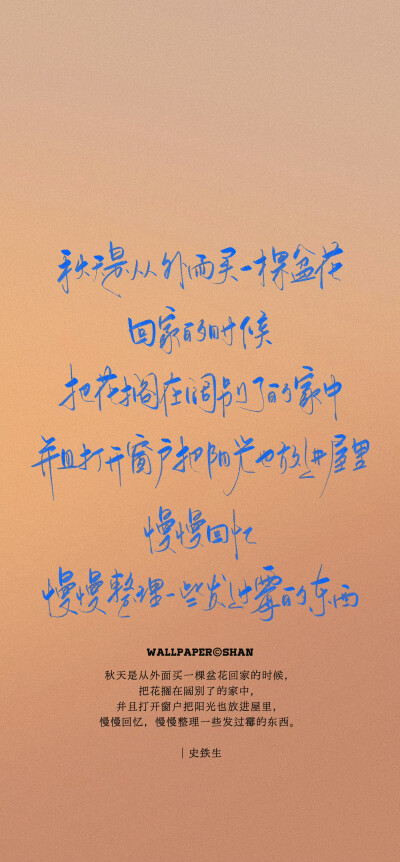 秋天是从外面买一棵盆花
回家的时候
把花搁在阔别了的家中
并且打开窗户把阳光也放进屋里
慢慢回忆
慢慢整理一些发过霉的东西
WALLPAPER©SHAN
秋天是从外面买一棵盆花回家的时候，
把花搁在阔别了的家中，
并且打开窗户把阳光也放进屋里，
慢慢回忆，慢慢整理一些发过霉的东西。
｜史铁生